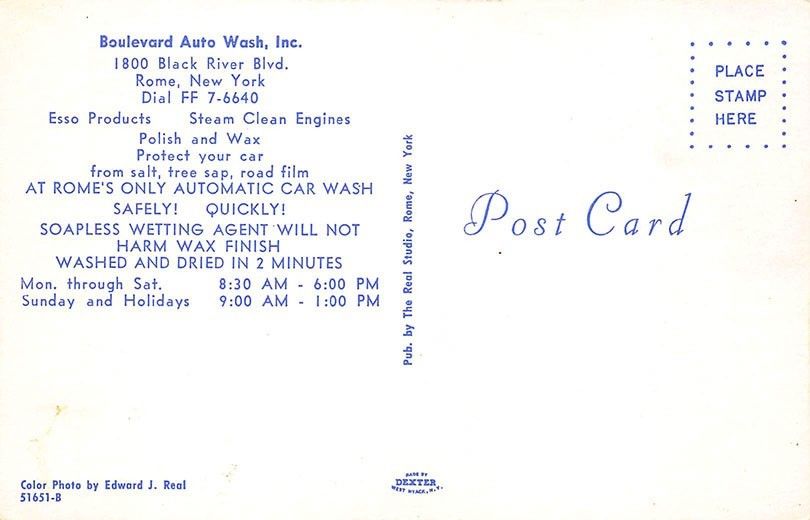 Boulevard Auto Wash, Inc.
1800 Black River Blvd.
Rome, New York
Dial FF 7-6640
Esso Products Steam Clean Engines
Polish and Wax
Protect your car
from salt, tree sap, road film
AT ROME'S ONLY AUTOMATIC CAR WASH
SAFELY! QUICKLY!
SOAPLESS WETTING AGENT WILL NOT
HARM WAX FINISH
WASHED AND DRIED IN 2 MINUTES
Mon. through Sat. 8:30 AM - 6:00 PM
Sunday and Holidays 9:00 AM - 1:00 PM
Color Photo by Edward J. Real
51651-B
Pub. by The Real Studio, Rome, New York
MADE BY
DEXTER
WEST NYACK, N.Y.
PLACE
STAMP
HERE
Post Card